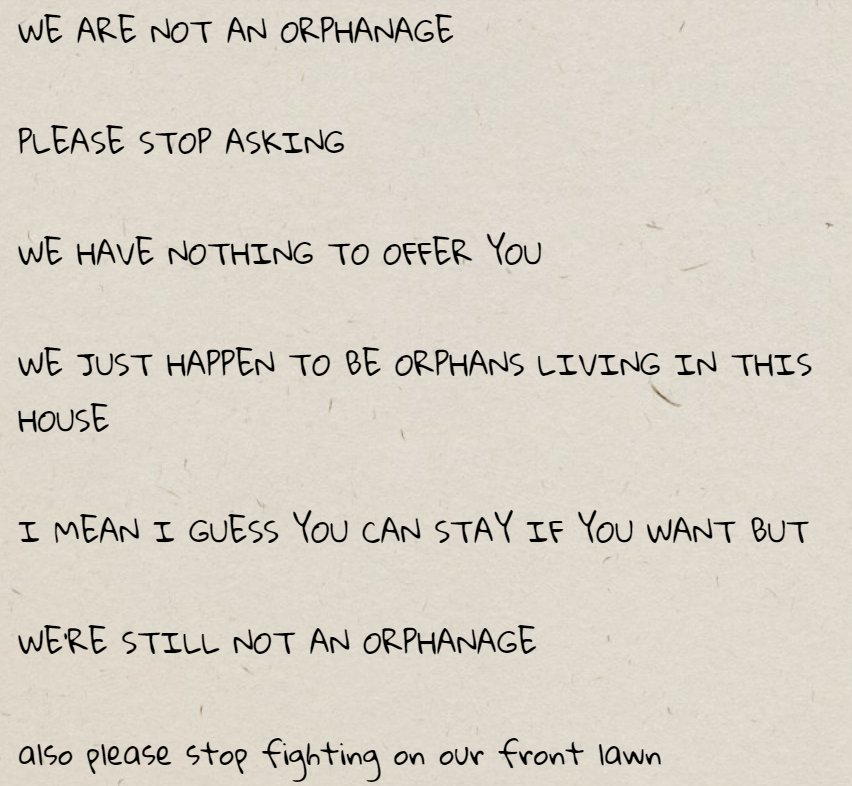 WE ARE NOT AN ORPHANAGE
PLEASE STOP ASKING
WE HAVE NOTHING TO OFFER YOU
WE JUST HAPPEN TO BE ORPHANS LIVING IN THIS
HOUSE
I MEAN I GUESS YOU CAN STAY IF YOU WANT BUT
WE'RE STILL NOT AN ORPHANAGE
also please stop fighting on our front lawn